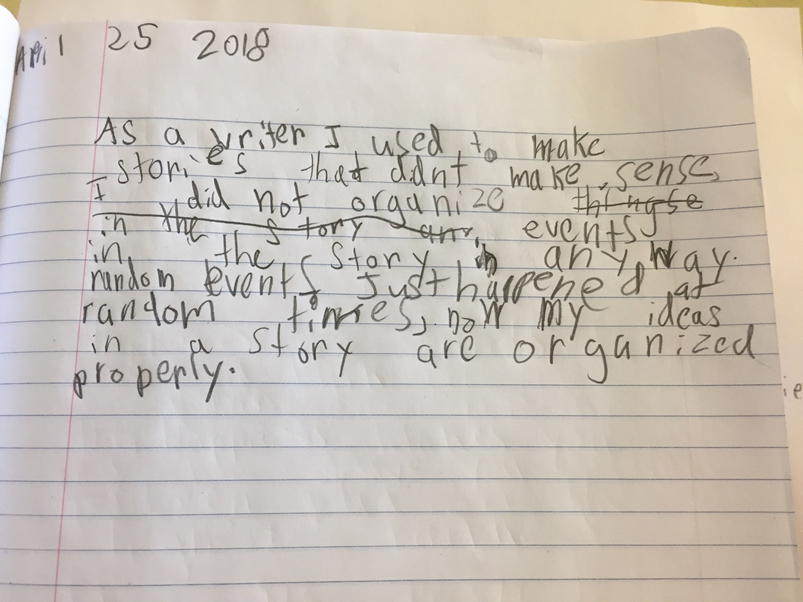 April 25 2018
As a writer I used to make
stories that didnt make sense,
I did not organize thingse
in the story an, events
in the story in any way.
random events Just happened at
random times, now my ideas
in a story are organized
properly.
ie